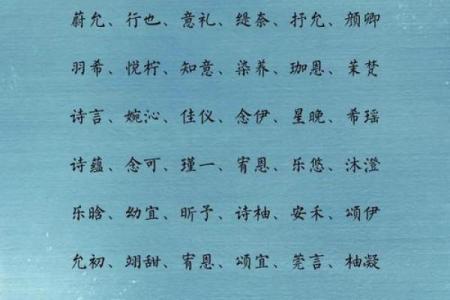 蔚允、行也、意礼、缇奈、抒允、颜卿
羽希、悦柠、知意、染荞、珈恩、茉梵
诗言、婉沁、佳仪、念伊、星晚、希瑶
诗蕴、念可、瑾一、宥恩、乐悠、沐澄
乐晗、幼宜、昕予、诗柚、安禾、颂伊
允初、翊甜、宥恩、颂宜、莞言、柚凝